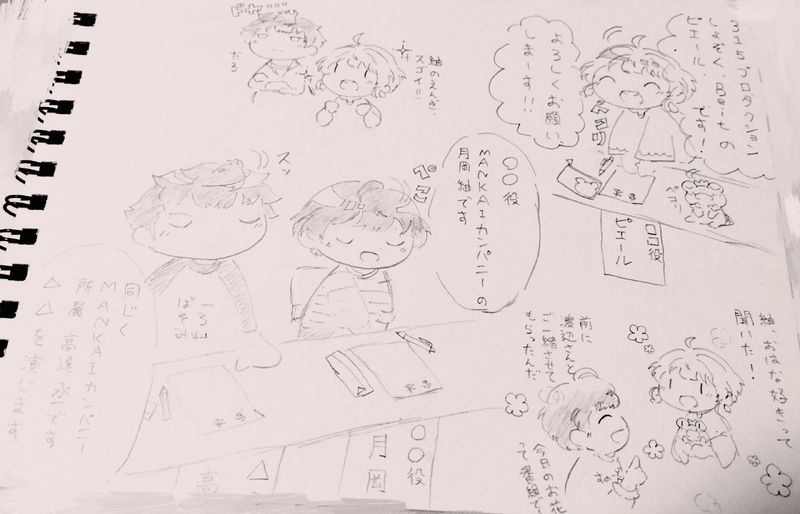 315プロダクション
しょぞく、Beitの
ピエール、です!!
よろしくお願い
しまーす!!
ペコッ
□□役
ピエール
紬のえんぎ、
スゴイ!!
ドヤ…
だろ
〇〇役
MANKAIカンパニーの
月岡紬です
ペコ
スッ
同じく
MANKAIカンパニー
所属 高遠丞です
△△を演じます
〇〇役
月岡
△
高
紬、おはな好きって
聞いた!
前に
渡辺さんと
ご一緒させて
もらったんだ
今日のお花
って番組で